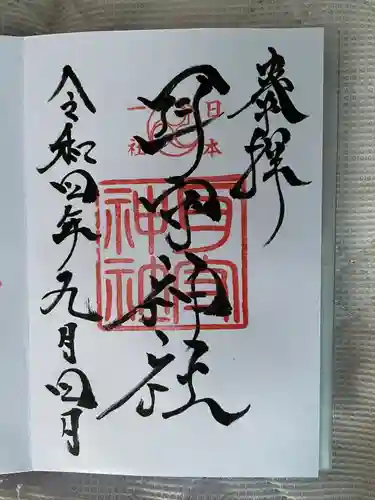 奉拝
日本一社
耳守神社
耳守神社
令和四年九月四日